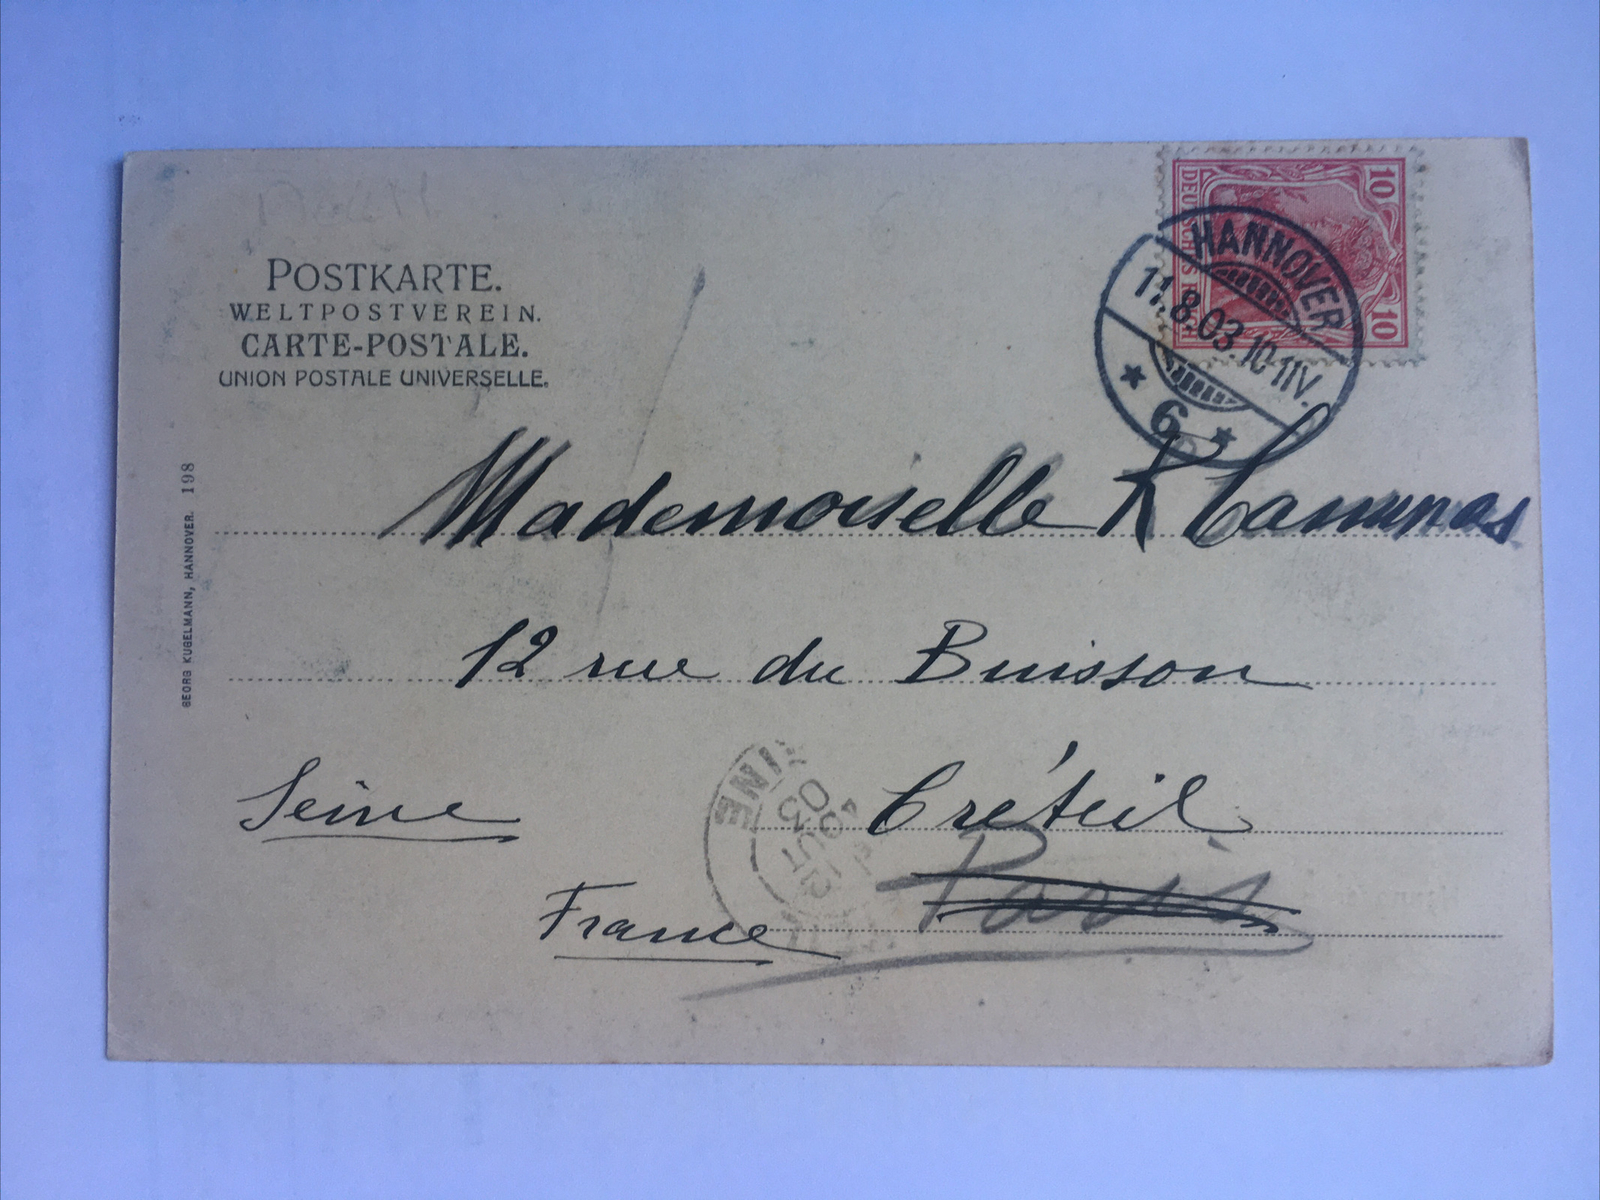 POSTKARTE.
WELTPOSTVEREIN.
CARTE-POSTALE.
UNION POSTALE UNIVERSELLE.
GEORG KUGELMANN, HANNOVER. 198
10
10
HANNOVER
11.8.03.10-11V.
* 6 *
Mademoiselle K
12 rue du Buisson
Seine
Créteil
Paris
France
12
AOUT
03